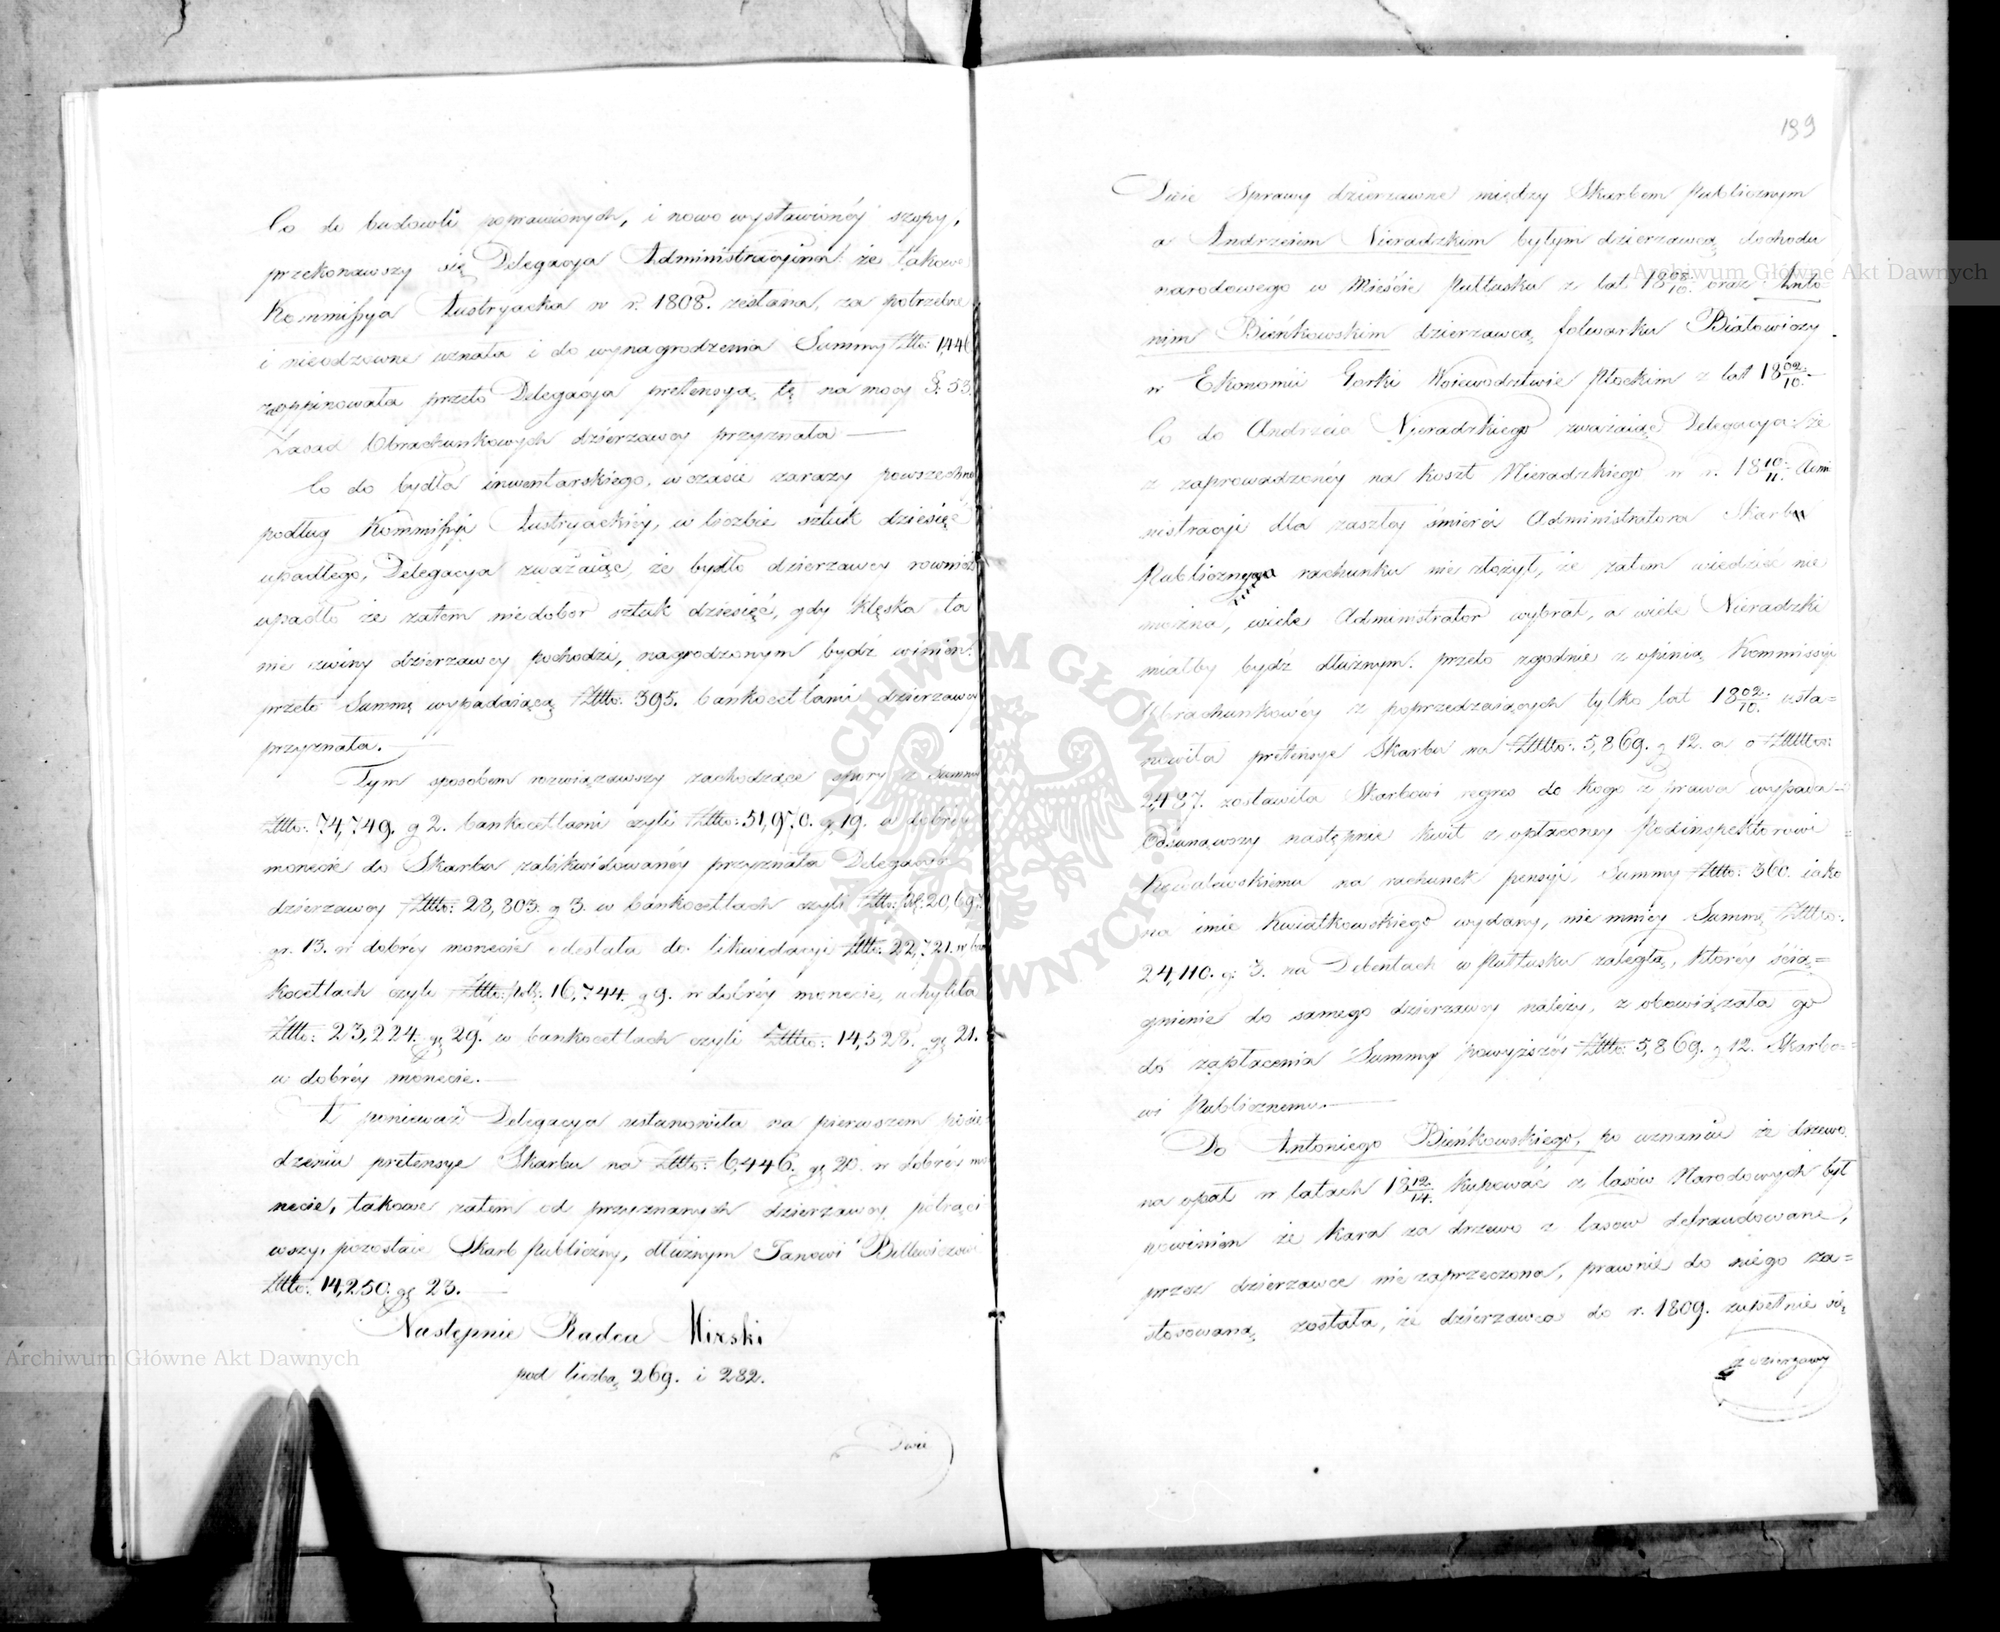 Co do budowli poprawionych, i nowo wystawionéy szopy,
przekonawszy się Delegacya Administracyina że takowe
Kommissya Austryacka w r. 1808. zesłana, za potrzebne
i nieodzowne uznała i do wynagrodzenia Summy Złło: 1,446
zaopiniowała przeto Delegacya pretensyą tę na mocy §. 53.
Zasad Obrachunkowych dzierzawcy przyznała —
Co do bydła inwentarskiego, w czasie zarazy powszechné
podług Kommissyi Austryackiéy, w liczbie sztuk dziesięć
upadłego, Delegacya zważaiąc, że bydło dzierzawcy rownież
upadło że zatem niedobor sztuk dziesięć, gdy klęska ta
nie z winy dzierzawcy pochodzi, nagrodzonym bydź winien.
przeto Summę wypadaiącą Złło: 395. bankocetlami dzierzawcy
przyznała. —
Tym sposobem rozwiązawszy zachodzące spory z Summy
Złło: 74,749. g 2. bankocetlami czyli Złło: 51,970. g 19. w dobréy
monecie do Skarbu zalikwidowanéy przyznała Delegacya
dzierzawcy Złło: 28,803. g 3. w bankocetlach czyli Złło: pol: 20,697.
gr. 13. w dobréy monecie odesłała do likwidacyi Złło: 22,721. w ban
kocetlach czyli Złło: pol: 16,744. g 9. w dobréy monecie, uchyliła
Złło: 23,224. gr 29. w bankocetlach czyli Złło: 14,528. gr 21.
w dobréy monecie. —
A ponieważ Delegacya ustanowiła na pierwszem posie
dzeniu pretensye Skarbu na Złło: 6,446. gr 20. w dobréy mo
necie, takowe zatem od przyznanych dzierzawcy, potrąci
wszy, pozostaie Skarb Publiczny, dłużnym Janowi Billewiczowi
Złło: 14,250. gr 23. —
Następnie Radca Mirski
pod liczbą 269. i 282.
Dwie
199
Dwie Sprawy dzierzawne między Skarbem Publicznym
a Andrzeiem Nieradzkim byłym dzierzawcą dochodu
narodowego w Mieście Pułtusku z lat 1808/10. oraz Anto=
nim Bieńkowskim dzierzawcą folwarku Białowieży
w Ekonomii Gorki Woiewodztwie Płockim z lat 1802/10. —
Co do Andrzeia Nieradzkiego zważaiąc Delegacya: że
z zaprowadzonéy na koszt Nieradzkiego w r. 1810/11. Admi
nistracyi dla zaszłey śmierci Administratora Skarb
Publiczny rachunku nie złożył, że zatem wiedzieć nie
można, wiele Administrator wybrał, a wiele Nieradzki
miałby bydz dłużnym. przeto zgodnie z opinią Kommissyi
Obrachunkowey z poprzedzaiących tylko lat 1802/10. usta=
nowiła pretensye Skarbu na Złło: 5,869. g 12. a o Złło:
2,437. zostawiła Skarbowi regres do kogo z prawa wypada —
Odsunąwszy następnie kwit z opłaconey Podinspektorowi
Kowalewskiemu na rachunek pensyi, Summy Złło: 360. iako
na imie Kwiatkowskiego wydany, nie mniéy Summę Złło:
24,110. g. 3. na Debentach w Pułtusku zaległą, którey ścią=
gnienie do samego dzierzawcy należy, zobowiązała go
do zapłacenia Summy powyższéy Złło: 5,869. g 12. Skarbo=
wi Publicznemu. —
Do Antoniego Bieńkowskiego, po uznaniu że drzewo
na opał w latach 1812/14. kupować z lasow Narodowych był
powinien że kara za drzewo z lasow defraudowane,
przez dzierzawcę nie zaprzeczona, prawnie do niego za=
stosowaną została, że dzierzawca do r. 1809. zupełnie się
z dzierzawy
Archiwum Główne Akt Dawnych
Archiwum Główne Akt Dawnych
ARCHIWUM GŁÓWNE AKT DAWNYCH